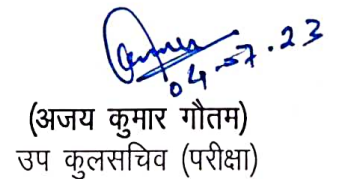 04.07.23
(अजय कुमार गौतम)
उप कुलसचिव (परीक्षा)